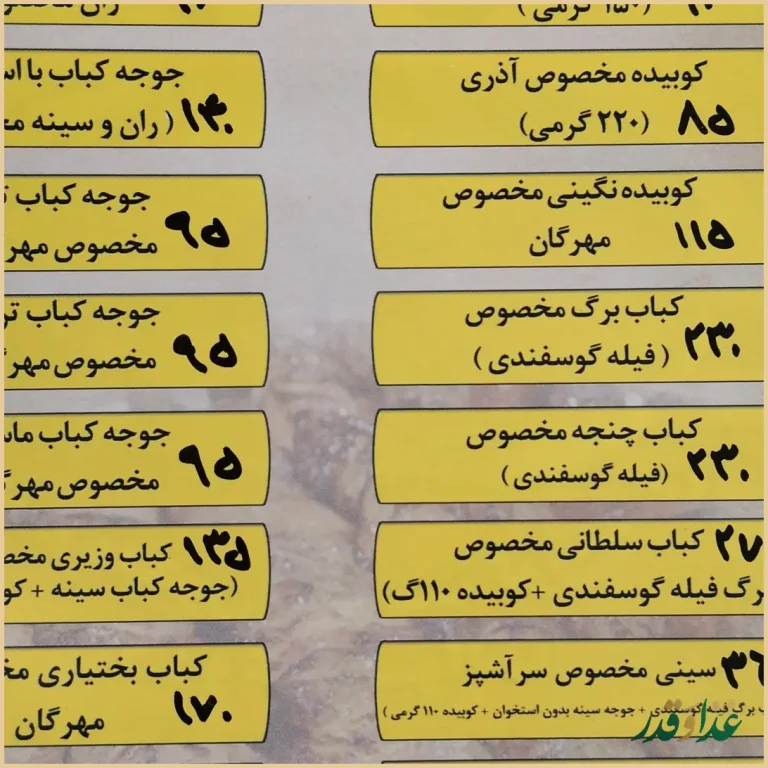 (۱۵۰ گرمی)
کوبیده مخصوص آذری
۸۵ (۲۲۰ گرمی)
کوبیده نگینی مخصوص
۱۱۵ مهرگان
کباب برگ مخصوص
۲۳۰ (فیله گوسفندی)
کباب چنجه مخصوص
۲۳۰ (فیله گوسفندی)
۲۷ کباب سلطانی مخصوص
فیله گوسفندی +کوبیده ۱۱۰گ)
۳۶ سینی مخصوص سرآشپز
برگ فیله گوسفندی + جوجه سینه بدون استخوان + کوبیده ۱۱۰ گرمی)
جوجه کباب با
۱۳۰ (ران و سینه
جوجه کباب
۹۵ مخصوص
جوجه کباب
۹۵ مخصوص
جوجه کباب
۹۵ مخصوص
۱۳۵ کباب وزیری
(جوجه کباب سینه +
کباب بختیاری
۱۷۰ مهرگان
غذا و قدر